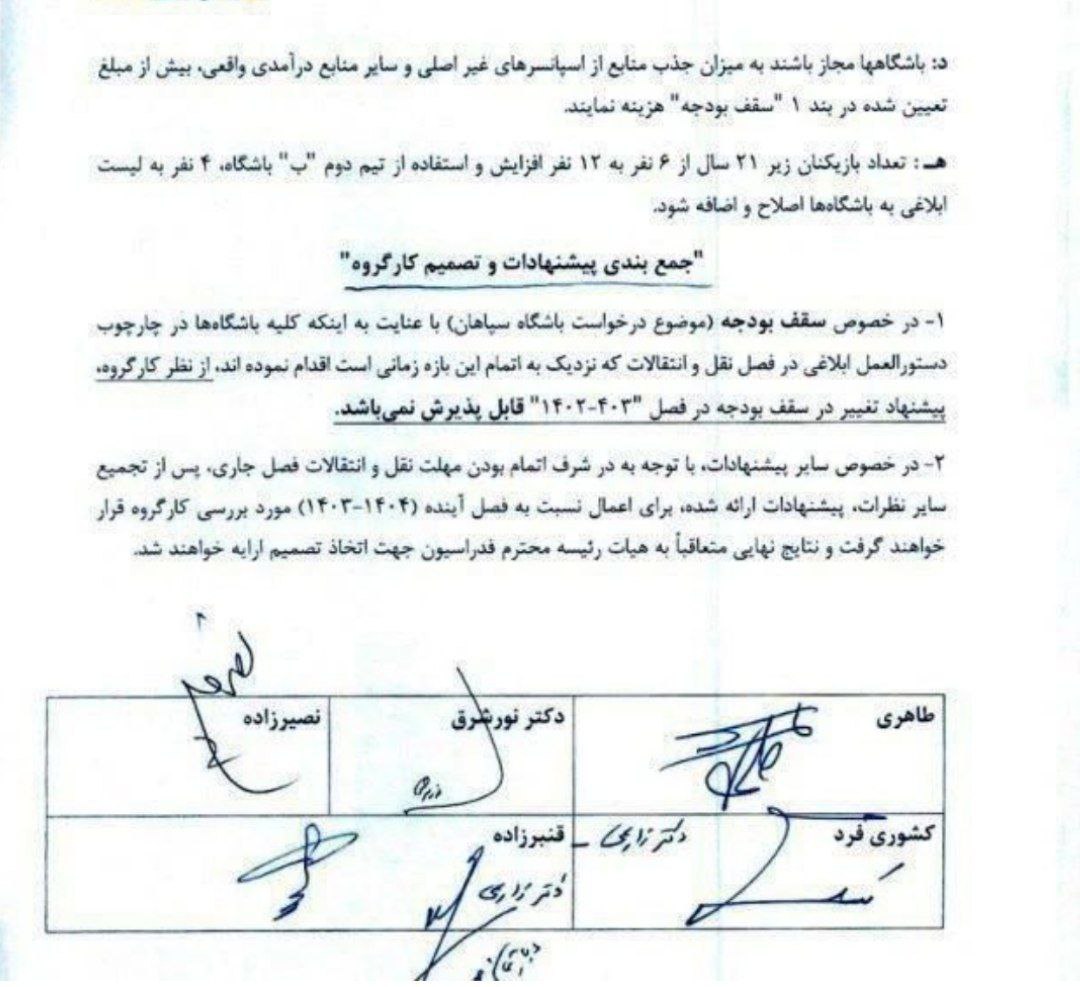 د: باشگاهها مجاز باشند به میزان جذب منابع از اسپانسرهای غیر اصلی و سایر منابع درآمدی واقعی، بیش از مبلغ
تعیین شده در بند ۱ "سقف بودجه" هزینه نمایند.
هـ : تعداد بازیکنان زیر ۲۱ سال از ۶ نفر به ۱۲ نفر افزایش و استفاده از تیم دوم "ب" باشگاه، ۴ نفر به لیست
ابلاغی به باشگاه‌ها اصلاح و اضافه شود.
"جمع بندی پیشنهادات و تصمیم کارگروه"
۱- در خصوص سقف بودجه (موضوع درخواست باشگاه سپاهان) با عنایت به اینکه کلیه باشگاه‌ها در چارچوب
دستورالعمل ابلاغی در فصل نقل و انتقالات که نزدیک به اتمام این بازه زمانی است اقدام نموده اند، از نظر کارگروه،
پیشنهاد تغییر در سقف بودجه در فصل "۴۰۳-۱۴۰۲" قابل پذیرش نمی‌باشد.
۲- در خصوص سایر پیشنهادات، با توجه به در شرف اتمام بودن مهلت نقل و انتقالات فصل جاری، پس از تجمیع
سایر نظرات، پیشنهادات ارائه شده، برای اعمال نسبت به فصل آینده (۱۴۰۴-۱۴۰۳) مورد بررسی کارگروه قرار
خواهند گرفت و نتایج نهایی متعاقباً به هیات رئیسه محترم فدراسیون جهت اتخاذ تصمیم ارایه خواهند شد.
طاهری
دکتر نورشرق
نصیرزاده
کشوری فرد
قنبرزاده